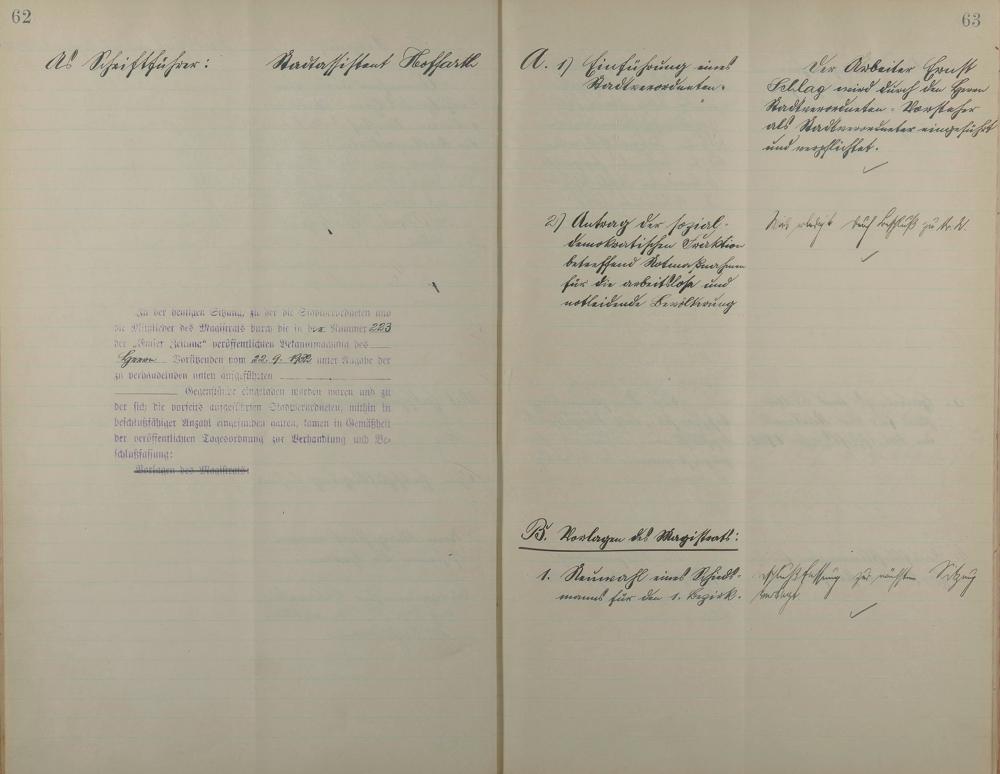 62
Als Schriftführer: Stadtassistent
Zu der heutigen Sitzung, zu der die Stadtverordneten und
die Mitglieder des Magistrats durch die in der Nummer 223
der „Emser Zeitung“ veröffentlichten Bekanntmachung des
Herrn Vorsitzenden vom 22. 9. 1922 unter Angabe der
zu verhandelnden unten aufgeführten
Gegenstände eingeladen worden waren und zu
der sich die vorseits aufgeführten Stadtverordneten, mithin in
beschlußfähiger Anzahl eingefunden hatten, kamen in Gemäßheit
der veröffentlichten Tagesordnung zur Verhandlung und Be-
schlußfassung:
Vorlagen des Magistrats:
63
A. 1) Einführung eines
Stadtverordneten.
Der Arbeiter Ernst
Schlag wird durch den Herrn
Stadtverordneten-Vorsteher
als Stadtverordneter eingeführt
und verpflichtet.
2) Antrag der sozial-
demokratischen Fraktion
betreffend Notmaßnahmen
für die arbeitslose und
notleidende Bevölkerung
Wird erledigt durch Beschluß zu
B. Vorlagen des Magistrats:
1. Neuwahl eines Schieds-
manns für den 1. Bezirk.
Beschlußfassung zur nächsten Sitzung
vertagt